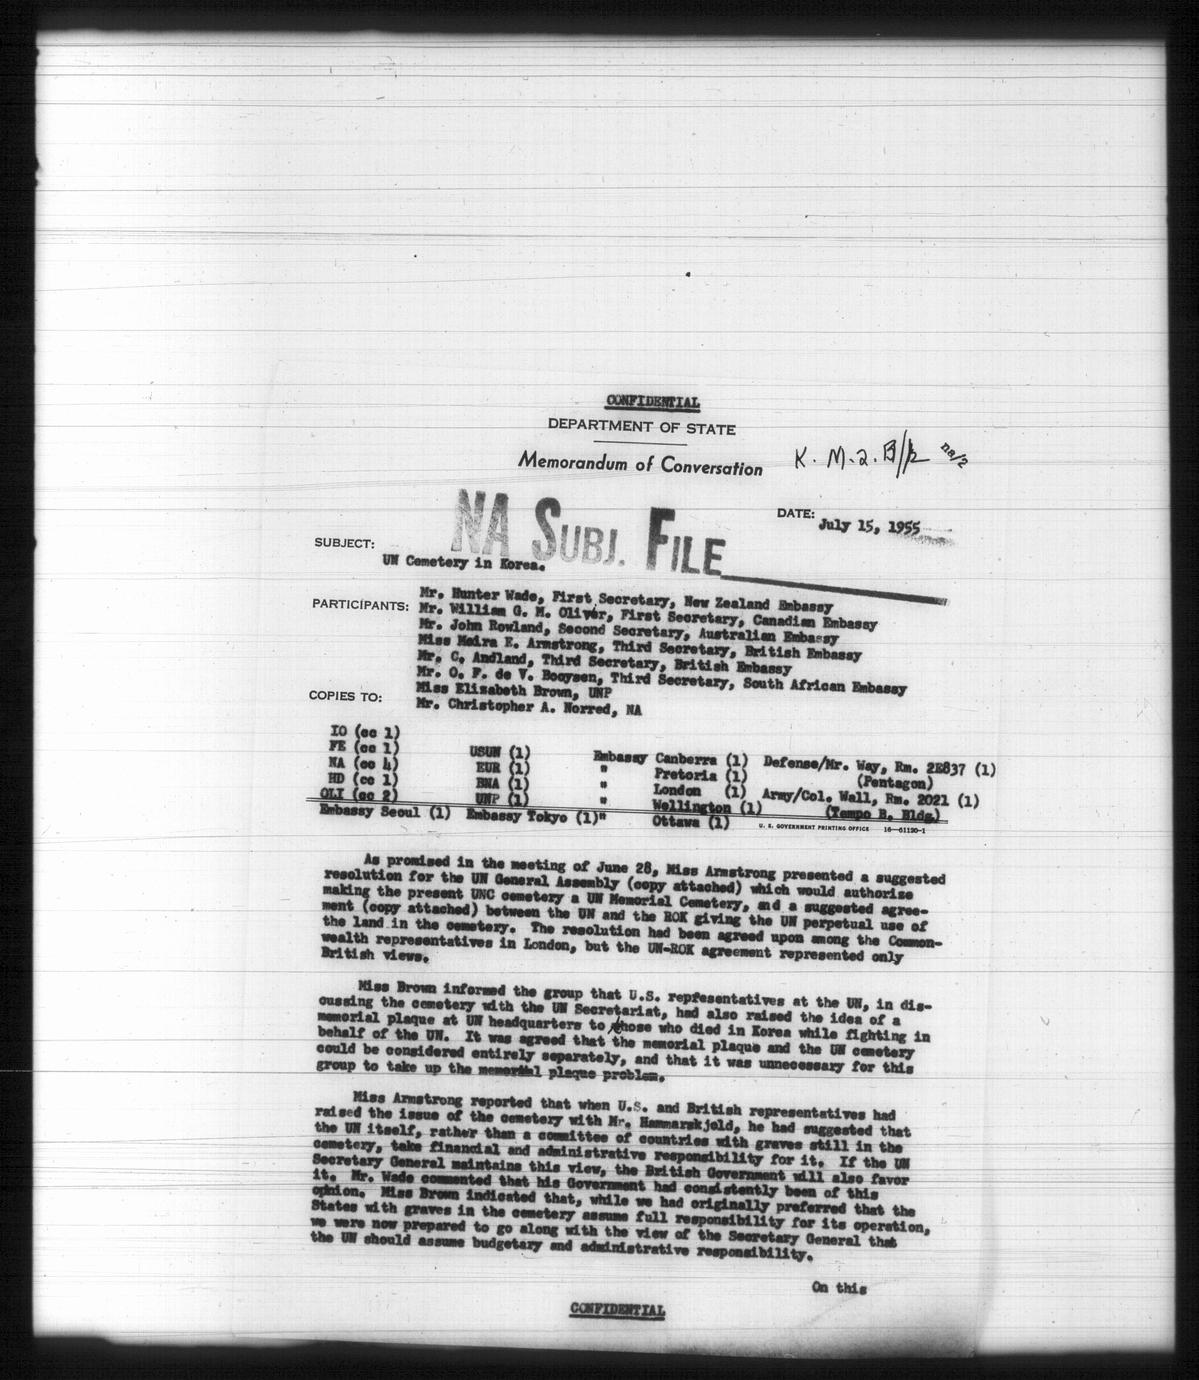 CONFIDENTIAL
DEPARTMENT OF STATE
Memorandum of Conversation
K. M. 2. B/k na/2
NA SUBJ. FILE
DATE: July 15, 1955
SUBJECT: UN Cemetery in Korea.
PARTICIPANTS: Mr. Hunter Wade, First Secretary, New Zealand Embassy
Mr. William G. M. Oliver, First Secretary, Canadian Embassy
Mr. John Rowland, Second Secretary, Australian Embassy
Miss Moira E. Armstrong, Third Secretary, British Embassy
Mr. C. Andland, Third Secretary, British Embassy
Mr. O. F. de V. Booysen, Third Secretary, South African Embassy
Miss Elizabeth Brown, UNP
Mr. Christopher A. Norred, NA
COPIES TO:
IO (cc 1)
FE (cc 1) USUN (1) Embassy Canberra (1) Defense/Mr. Way, Rm. 2E837 (1)
NA (cc 4) EUR (1) " Pretoria (1) (Pentagon)
HD (cc 1) BNA (1) " London (1) Army/Col. Wall, Rm. 2021 (1)
OLI (cc 2) UNP (1) " Wellington (1) (Tempo B. Bldg.)
Embassy Seoul (1) Embassy Tokyo (1) " Ottawa (1) U. S. GOVERNMENT PRINTING OFFICE 16—61120-1
As promised in the meeting of June 28, Miss Armstrong presented a suggested
resolution for the UN General Assembly (copy attached) which would authorize
making the present UNC cemetery a UN Memorial Cemetery, and a suggested agree-
ment (copy attached) between the UN and the ROK giving the UN perpetual use of
the land in the cemetery. The resolution had been agreed upon among the Common-
wealth representatives in London, but the UN-ROK agreement represented only
British views.
Miss Brown informed the group that U.S. representatives at the UN, in dis-
cussing the cemetery with the UN Secretariat, had also raised the idea of a
memorial plaque at UN headquarters to those who died in Korea while fighting in
behalf of the UN. It was agreed that the memorial plaque and the UN cemetery
could be considered entirely separately, and that it was unnecessary for this
group to take up the memorial plaque problem.
Miss Armstrong reported that when U.S. and British representatives had
raised the issue of the cemetery with Mr. Hammarskjold, he had suggested that
the UN itself, rather than a committee of countries with graves still in the
cemetery, take financial and administrative responsibility for it. If the UN
Secretary General maintains this view, the British Government will also favor
it. Mr. Wade commented that his Government had consistently been of this
opinion. Miss Brown indicated that, while we had originally preferred that the
States with graves in the cemetery assume full responsibility for its operation,
we were now prepared to go along with the view of the Secretary General that
the UN should assume budgetary and administrative responsibility.
On this
CONFIDENTIAL